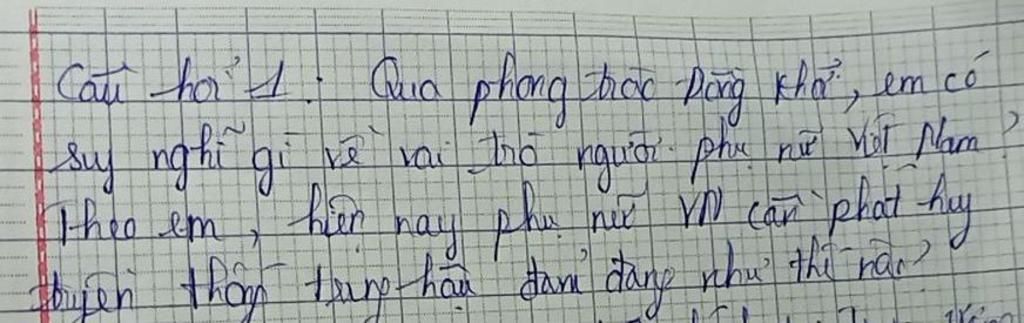 Câu hỏi 1: Qua phong trào Đồng khởi, em có
suy nghĩ gì về vai trò người phụ nữ Việt Nam?
Theo em, hiện nay phụ nữ VN cần phát huy
truyền thống trung hậu đảm đang như thế nào?